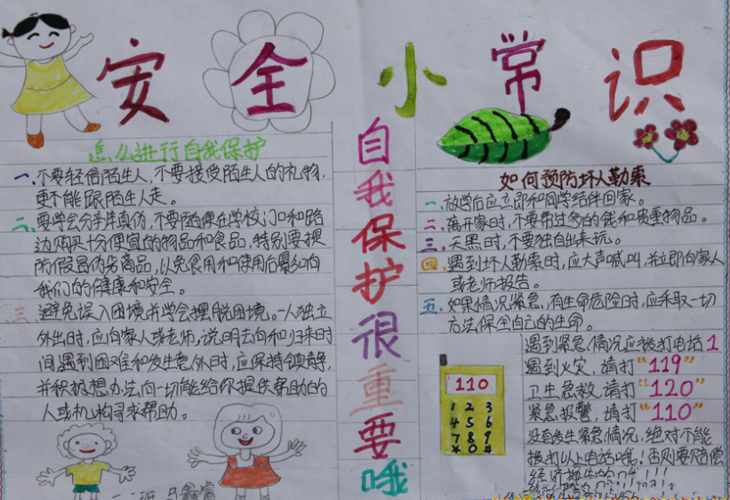 安全小常识
怎么进行自我保护
一、不要轻信陌生人,不要接受陌生人的礼物,
更不能跟陌生人走。
二、要学会分辨真伪,不要随便在学校门口和路
边购买十分便宜的物品和食品,特别要提
防假冒伪劣商品,以免食用和使用后影响
我们的健康和安全。
三、避免误入困境并学会摆脱困境。一人独立
外出时,应向家人或老师,说明去向和归来时
间,遇到困难和发生意外时,应保持镇静,
并积极想办法向一切能给你提供帮助的
人或机构寻求帮助。
自我保护很重要哦
如何预防坏人勒索
一、放学后应立即和同学结伴回家。
二、离开家时,不要带过多的钱和贵重物品。
三、天黑时,不要独自出来玩。
四、遇到坏人勒索时,应大声喊叫,并立即向家人
或老师报告。
五、如果情况紧急,有生命危险时,应采取一切
方法保全自己的生命。
110
1 2 3
4 5 6
7 8 9
* 0 #
遇到紧急情况应拨打电话1
遇到火灾,请打"119"
卫生急救,请打"120"
紧急报警,请打"110"
没有发生紧急情况,绝对不能
拨打以上电话哦,否则要赔偿